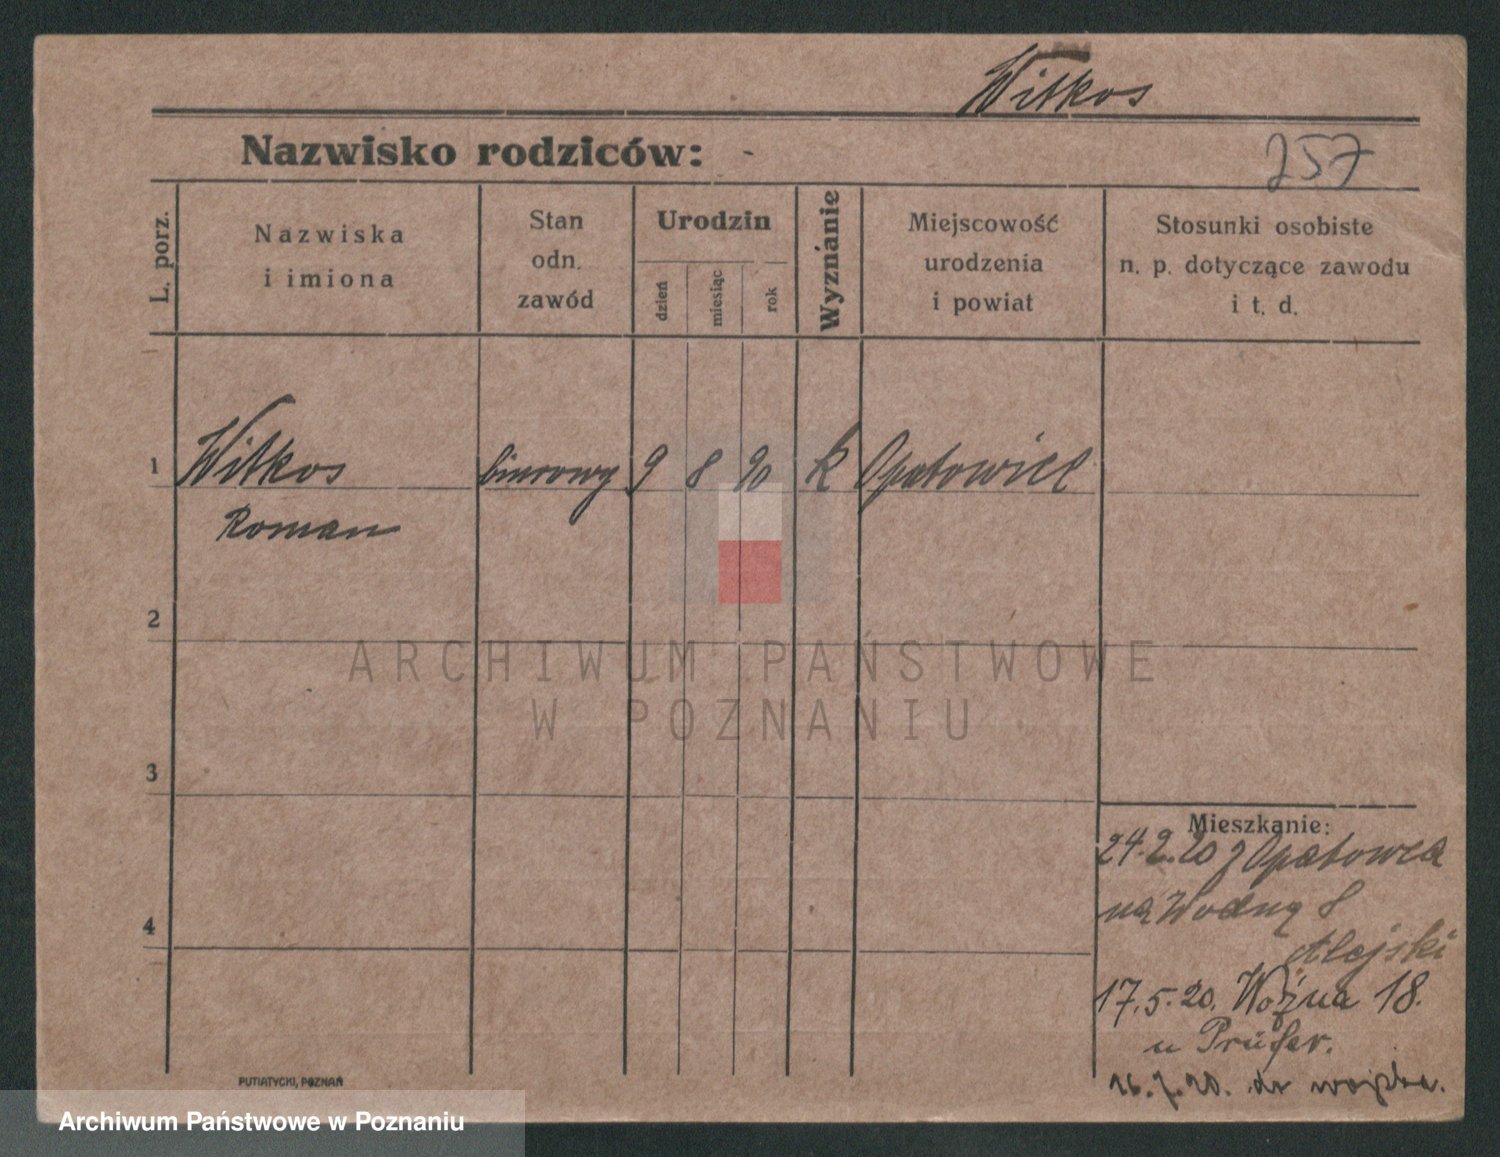 Witkos
Nazwisko rodziców: -
257
L. porz.
Nazwiska
i imiona
Stan
odn.
zawód
Urodzin
dzień
miesiąc
rok
Wyznanie
Miejscowość
urodzenia
i powiat
Stosunki osobiste
n. p. dotyczące zawodu
i t. d.
1 Witkos biurowy 9 8 90 k Opatowice
Roman
2
ARCHIWUM PAŃSTWOWE
W POZNANIU
3
Mieszkanie:
24.2.20 z Opatowca
na Wodną 8
Alejski
4
17.5.20. Woźna 18.
u Prüfer.
16.7.20. do wojska.
PUTIATYCKI, POZNAŃ
Archiwum Państwowe w Poznaniu